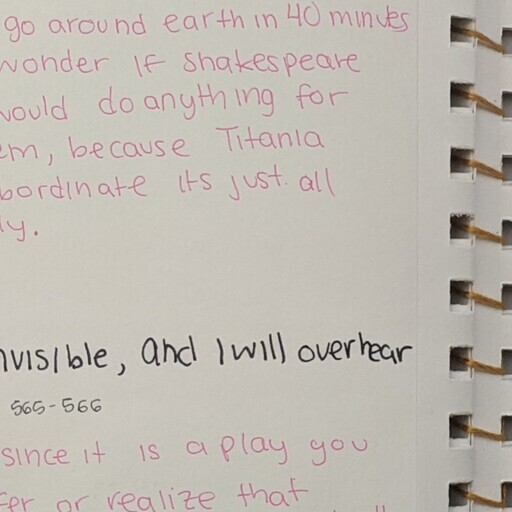 go around earth in 40 minutes
wonder if shakespeare
would do anything for
because Titania
its just all
invisible, and I will overhear
565-566
since it is a play you
or realize that